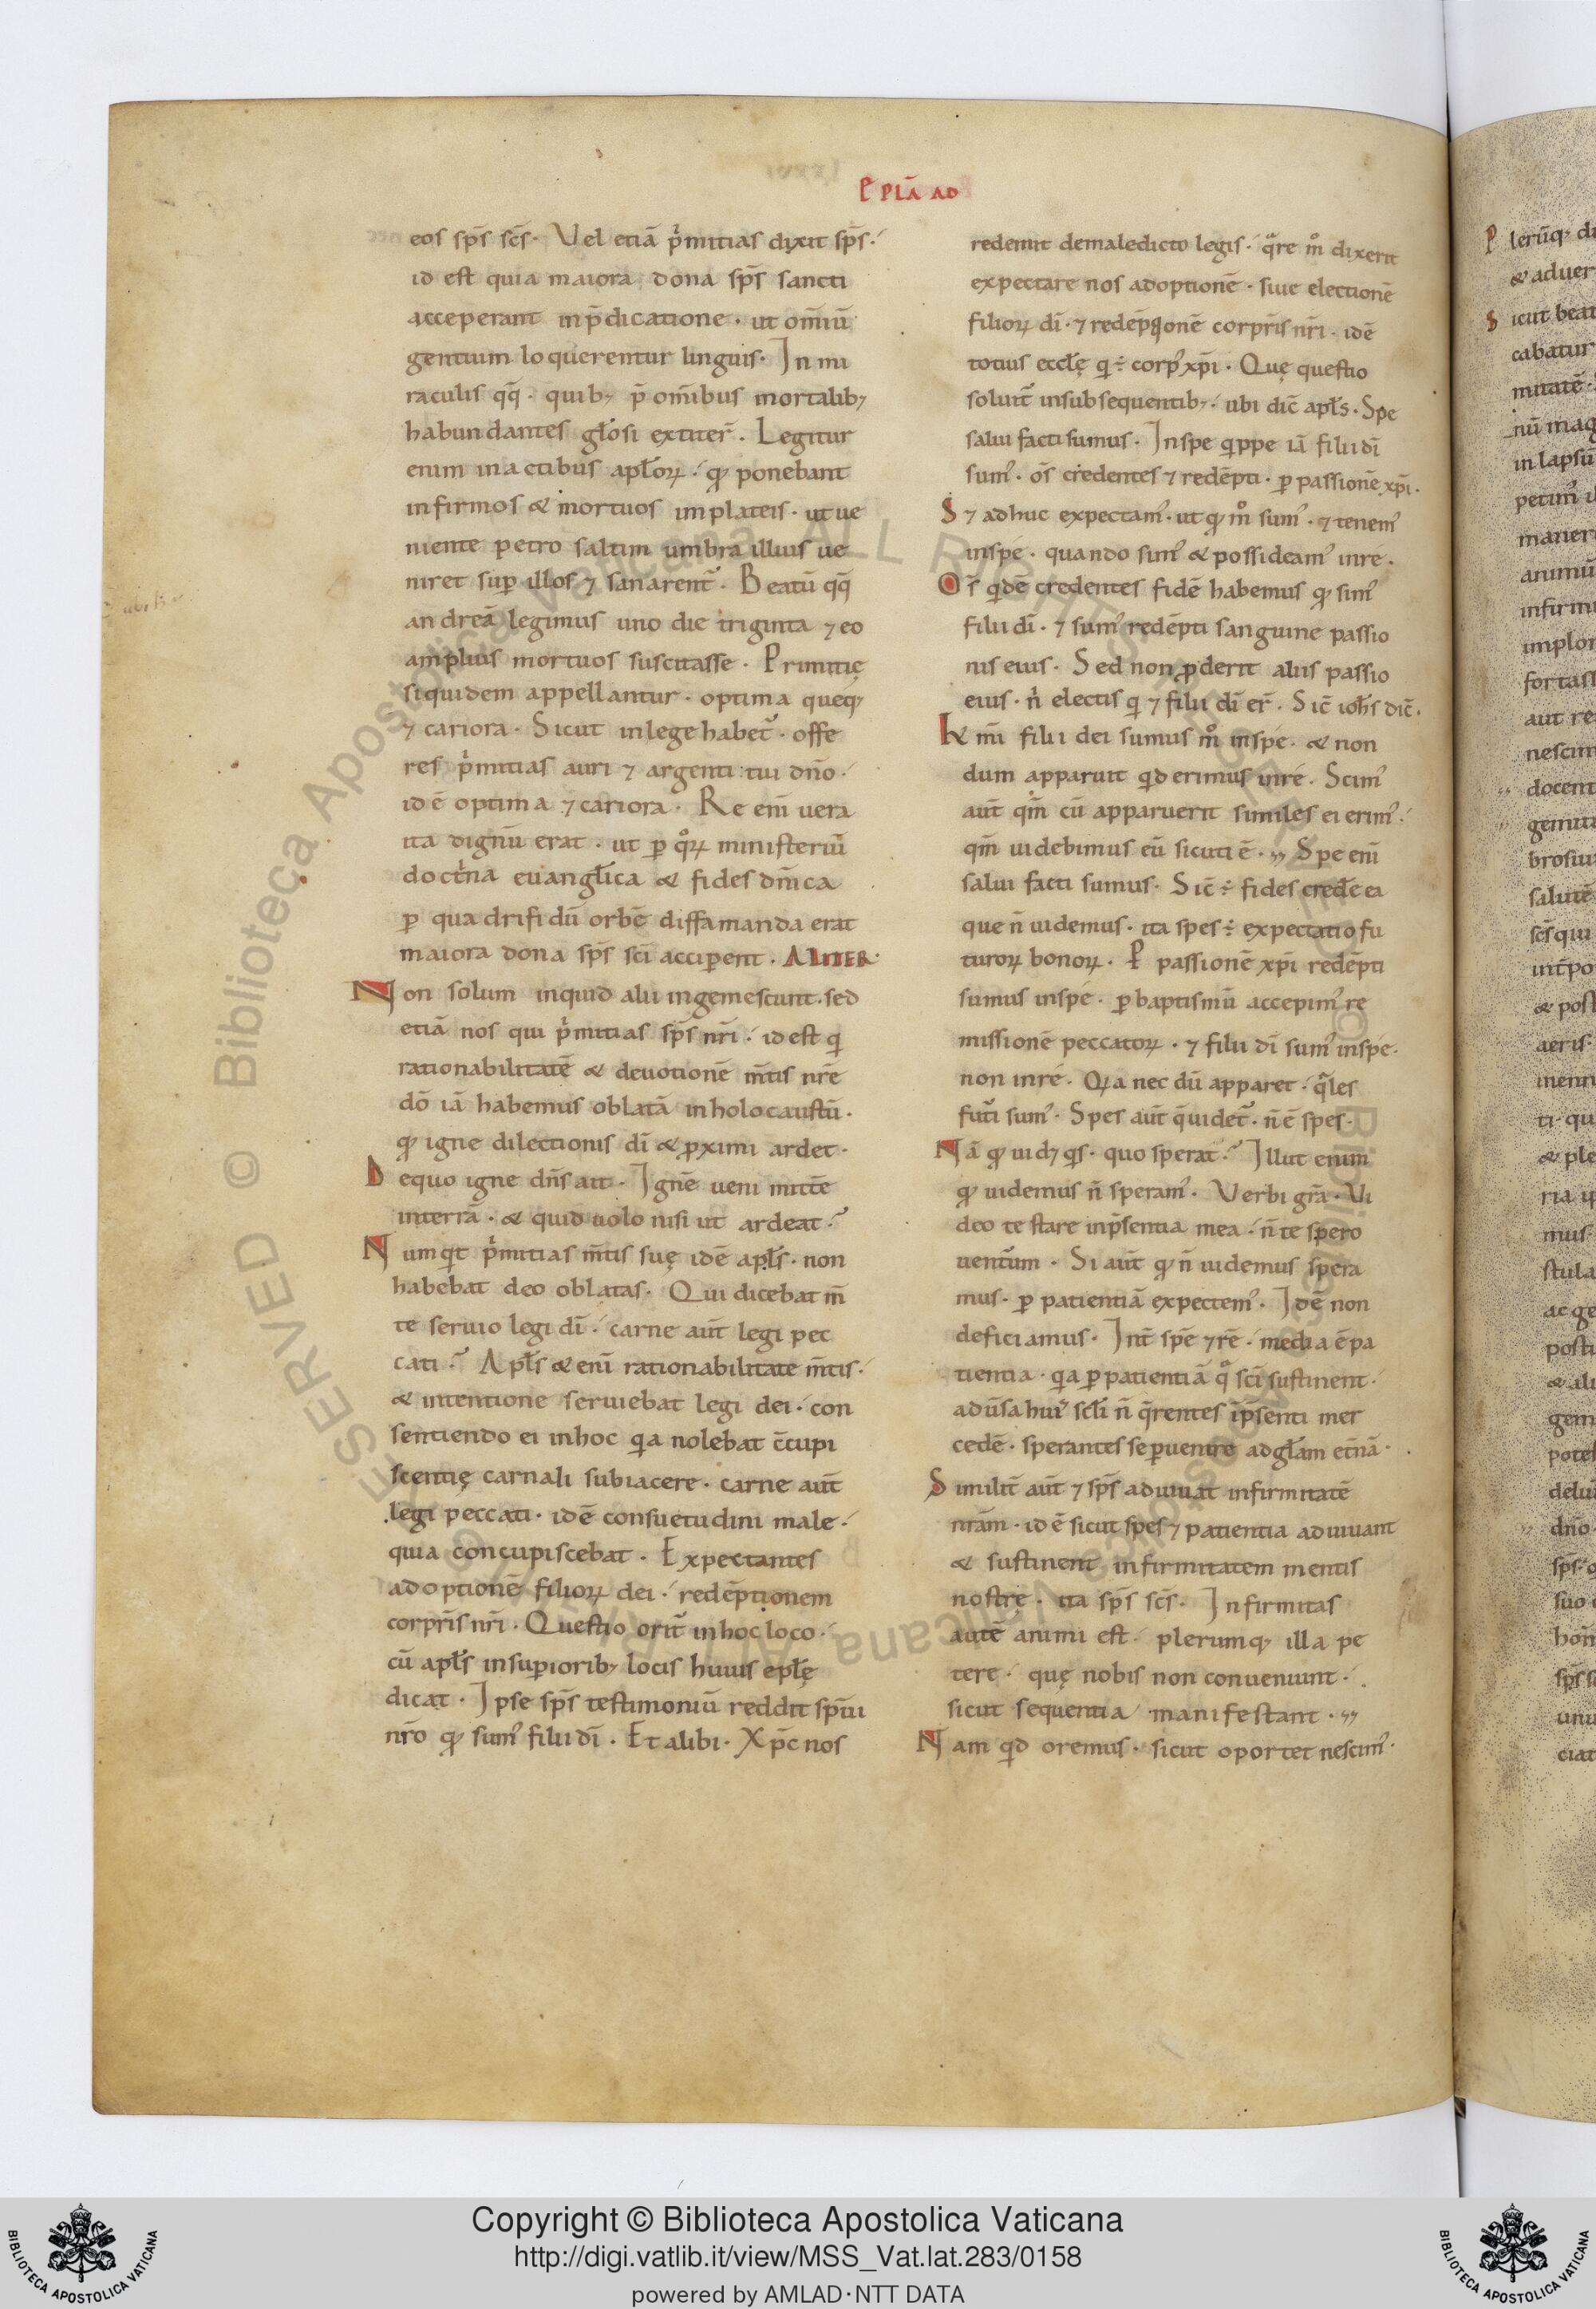 P̄ PLĀ AD
eos sp̄s sc̄s· Vel etiā pͥmitias dixit sp̄s·
id est quia maiora dona sp̄s sancti
acceperant in p̄dicatione· ut om̄iū
gentium loquerentur linguis· In mi
raculis qq̄· quib; p̄ om̄ibus mortalib;
habundantes gl̄osi extiter̄· Legitur
enim in actibus apl̄oꝝ· qđ ponebant
infirmos & mortuos in plateis· ut ue
niente petro saltim umbra illius ue
niret suꝑ illos ⁊ sanarent᷑· Beatū qq̄
andreā legimus uno die triginta ⁊ eo
amplius mortuos suscitasse· Primitię
siquidem appellantur· optima queq;
⁊ cariora· Sicut in lege habet᷑· offe
res pͥmitias auri ⁊ argenti tui dn̄o·
id ē optima ⁊ cariora· Re eni᷑ uera
ita dignū erat· ut ꝑ qͦꝝ ministeriū
doctͥna euangl̄ica & fides dn̄ica
ꝑ quadrifidū orbē diffamanda erat
maiora dona sp̄s sc̄i acciꝑent· ALITER·
Non solum inquid alii ingemescunt· sed
etiā nos qui pͥmitias sp̄s nr̄i· id est qi
rationabilitatē & deuotionē m̄tis nr̄e
dō iā habemus oblatā in holocaustū·
qđ igne dilectionis dī & ꝓximi ardet·
De quo igne dn̄s ait· Ignē ueni mitte᷑
in terrā· & quid uolo nisi ut ardeat?
Numqͥt pͥmitias m̄tis suę idē apl̄s· non
habebat deo oblatas· Qui dicebat m̄
te seruio legi dī· carne aūt legi pec
cati? Apl̄s & eni᷑ rationabilitate m̄tis·
& intentione seruiebat legi dei· con
sentiendo ei in hoc qͥa nolebat c̄cupi
scentię carnali subiacere· carne aūt
legi peccati· id ē consuetudini male·
quia concupiscebat· Expectantes
adoptionē filioꝝ dei· redēptionem
corpr̄is nr̄i· Questio orit᷑ in hoc loco·
cū apl̄s in suꝑiorib; locis huius epl̄ę
dicat· Ipse sp̄s testimoniū reddit sp̄ui
nr̄o qđ sum᾽ filii dī· Et alibi· Xp̄c nos
redemit de maledicto legis· qͣre mͦ dixerit
expectare nos adoptionē· siue electionē
filioꝝ dī· ⁊ redēpꝗonē corpr̄is nr̄i· id ē
totius eccl̄ę qi ÷ corp᾽ xp̄i· Quę questio
soluit᷑ in subsequentib;· ubi dic̄ apl̄s· Spe
salui facti sumus· In spe qͥppe iā filii dī
sum᾽· os̄ credentes ⁊ redēpti· ꝑ passionē xp̄i·
S; ⁊ adhuc expectam᾽· ut qđ mͦ sum᾽· ⁊ tenem᾽
in spe· quando sim᾽ & possideam᾽ in re·
Os̄ qͥdē credentes fidē habemus qđ sim᾽
filii dī· ⁊ sum᾽ redēpti sanguine passio
nis eius· Sed non ꝓderit aliis passio
eius· nͥ electis qi ⁊ filii dī er̄· Sic̄ ioh̄s dic̄·
Kmi᷑ filii dei sumus mͦ in spe· & non
dum apparuit qͥd erimus in re· Scim᾽
aūt qm̄ cū apparuerit similes ei erim᾽·
qm̄ uidebimus eū sicuti ē· Spe eni᷑
salui facti sumus· Sic̄ ÷ fides credere ea
que n̄ uidemus· ita spes ÷ expectatio fu
turoꝝ bonoꝝ· P̱ passionē xp̄i redēpti
sumus in spe· ꝑ baptismū accepim᾽ re
missionē peccatoꝝ· ⁊ filii dī sum᾽ in spe·
non in re· Qͥa nec dū apparet· qͣles
futͥ sum᾽· Spes aūt q̄ uidet᷑· n̄ ē spes·
Nā qđ uid; qͥs· quo sperat? Illut enim
qđ uidemus n̄ speram᾽· Verbi gr̄a· Vi
deo te stare in p̄sentia mea· n̄ te spero
uentūm· Si aūt qđ n̄ uidemus spera
mus· ꝑ patientiā expectem᾽· Id ē non
deficiamus· Int᷑ spē ⁊ rē· media ē pa
tientia· qͥa ꝑ patientiā qͦ sc̄i sustinent·
aduersa hui᾽ scl̄i n̄ q̄rentes ī p̄senti mer
cedē· sperantes se ꝑuenire ad gl̄am et̄nā·
Similit᷑ aūt ⁊ sp̄s adiuuat infirmitatē
nr̄am· id ē sicut spes ⁊ patientia adiuuant
& sustinent infirmitatem mentis
nostrę· ita sp̄s sc̄s· Infirmitas
autē animi est· plerumq; illa pe
tere· quę nobis non conueniunt·
sicut sequentia manifestant·
Nam qͥd oremus· sicut oportet nescim᾽·
Copyright © Biblioteca Apostolica Vaticana
http://digi.vatlib.it/view/MSS_Vat.lat.283/0158
powered by AMLAD·NTT DATA
BIBLIOTECA APOSTOLICA VATICANA
BIBLIOTECA APOSTOLICA VATICANA